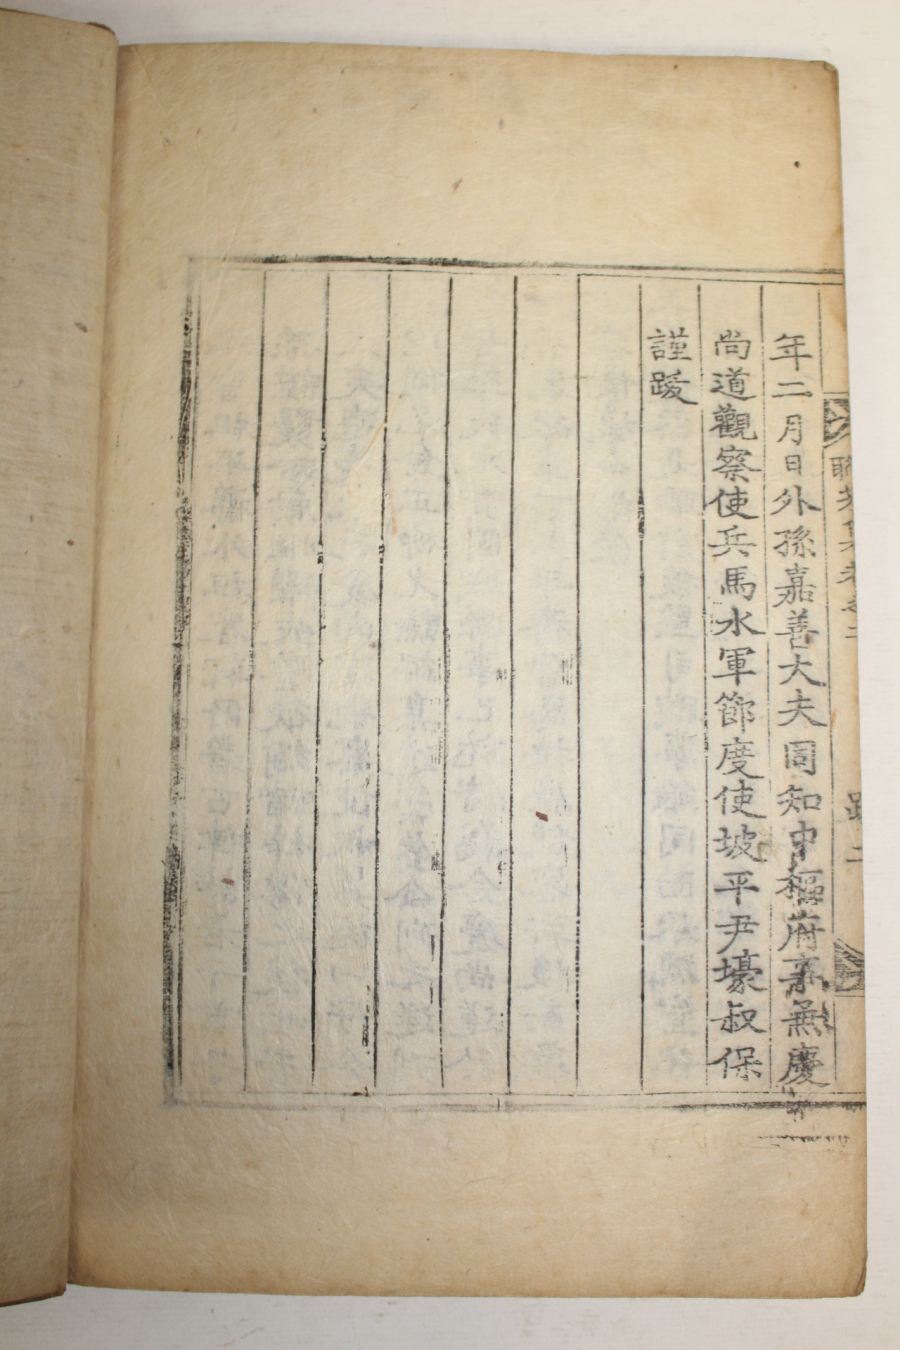 年二月日外孫嘉善大夫同知中樞府事兼慶
尚道觀察使兵馬水軍節度使坡平尹壕叔保
謹跋
聯芳集卷之三
跋 二